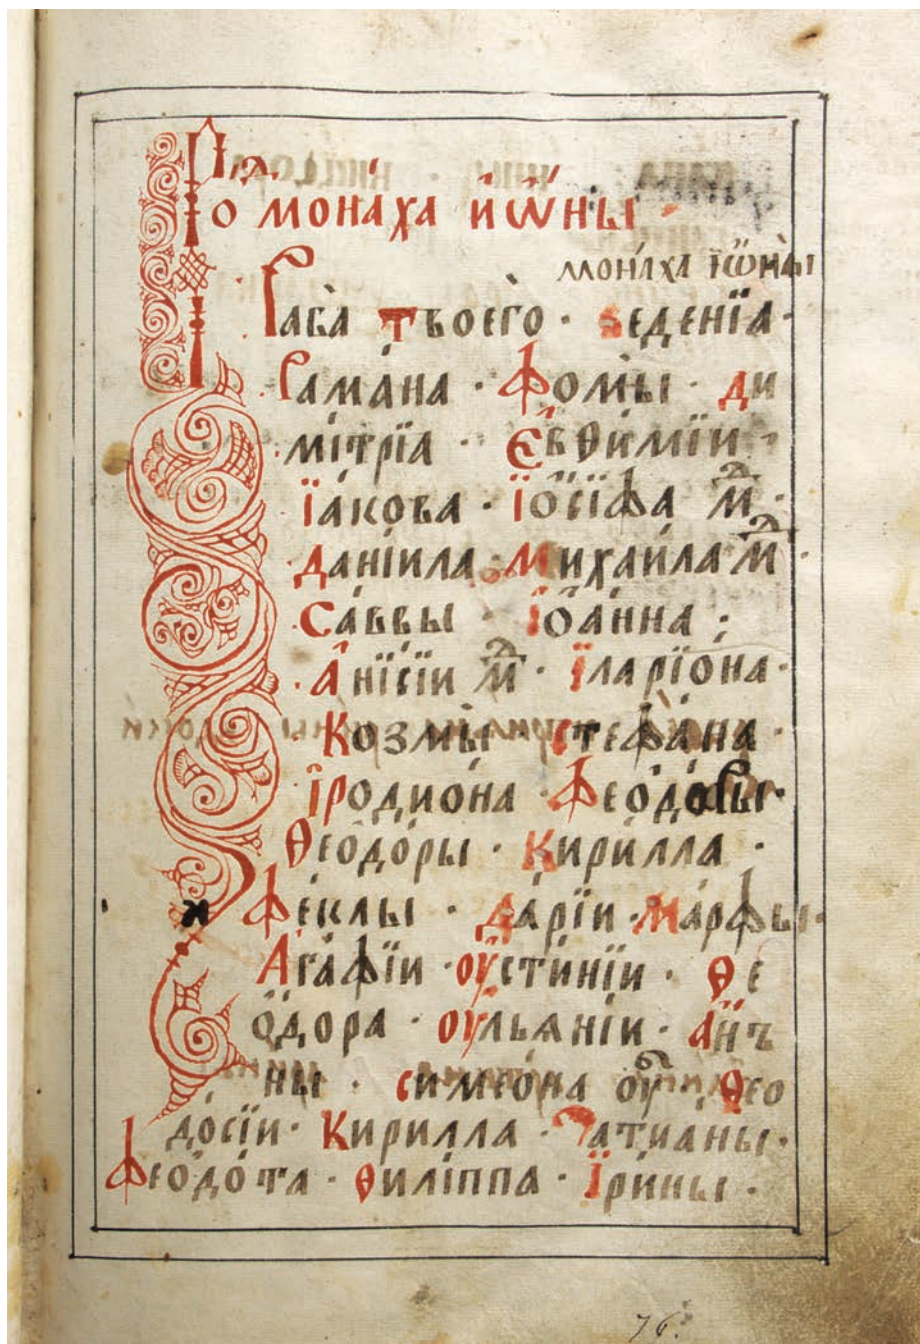 Роⷣ монаха иѡны
монаха їѡны
Раба твоего · веденїа ·
Самана · Фомы · ди
митрїа · Евѳимїи ·
Їакова · Їосїфа мⷧ ·
Данїила · Михаила мⷧ ·
Саввы · Їоанна :
Анїсїи мⷧ · Їларїона ·
Козмы · Стефана ·
Їродиона · Феодосы ·
Ѳеодоры · Кирилла ·
Феклы · Дарїи · Марфы ·
Агафїи · оустинїи · Ѳе
ѻдора · оульѧнїи · Анъ
ны · симеѻна оуⷠ · Ѳео
досїи · Кирилла · Татианы ·
Феодота · Ѳилїппа · Їрины ·
76.